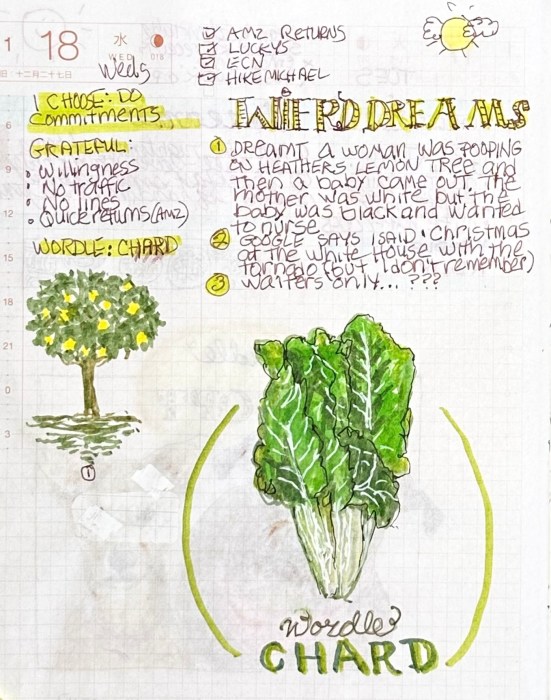 1 18 水
WED 018
日 十二月二十七日
Weds
AMZ RETURNS
LUCKYS
ECN
HIKE MICHAEL
I CHOOSE: DO
COMMITMENTS
GRATEFUL:
• Willingness
• No traffic
• No lines
• Quick returns (AMZ)
WORDLE: CHARD
WIERD DREAMS
① DREAMT A WOMAN WAS POOPING
ON HEATHERS LEMON TREE and
then a baby came out. The
mother was white but the
baby was black and wanted
to nurse
② GOOGLE SAYS I SAID: Christmas
at the White House with the
tornado (but I don't remember)
③ Waiters only...???
6
9
12
15
18
21
0
3
①
Wordle
CHARD